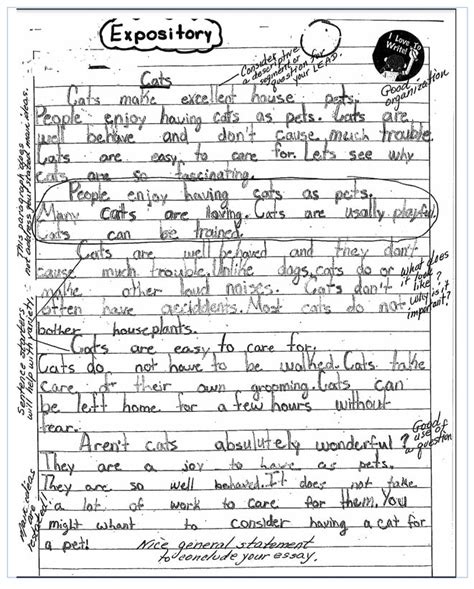 Expository
I Love To
Write!
Cats
Consider
a descriptive
segment or
question for
your LEAS.
Good
organization
Cats make excellent house pets.
People enjoy having cats as pets. Cats are
well behave and don't cause much trouble.
Cats are easy to care for. Lets see why
cats are so fascinating.
This paragraph does
not address your stated main ideas.
People enjoy having cats as pets.
Many cats are loving. Cats are usally playful.
Cats can be trained.
Cats are well behaved and they don't
cause much trouble. Unlike dogs, cats do
make other loud noises. Cats don't
often have accidents. Most cats do not
bother houseplants.
what does
it look
like?
Why is it
important?
Sentence starters
will help with variety.
Cats are easy to care for.
Cats do not have to be walked. Cats take
care of their own grooming. Cats can
be left home for a few hours without
fear.
Good
use of
a question
Aren't cats absolutely wonderful?
They are a joy to have as pets.
They are so well behaved. It does not take
a lot of work to care for them. You
might whant to consider having a cat for
a pet!
ideas
are
restated!
Nice general statement
to conclude your essay.